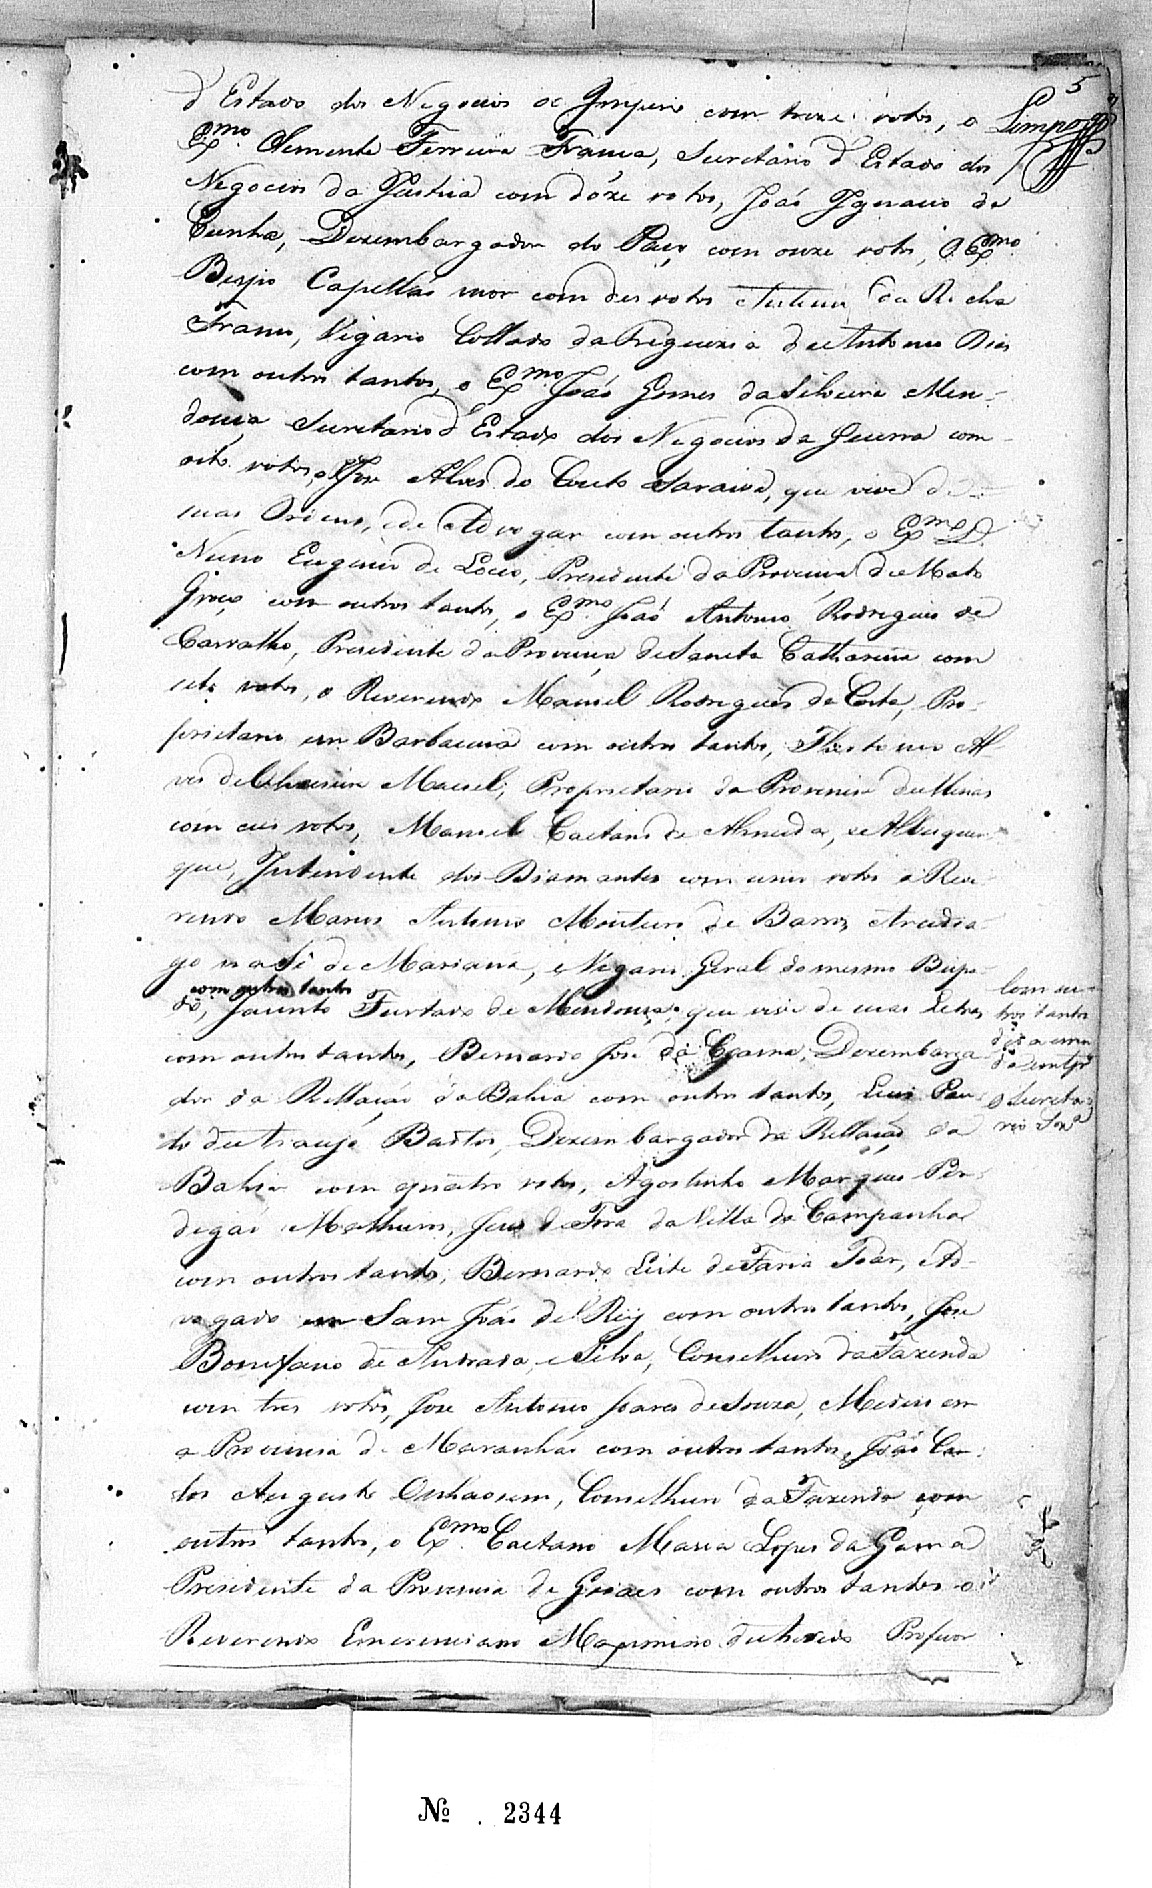 5
Limpo
d'Estado dos Negocios do Imperio com treze votos, o
Exmo. Clemente Ferreira França, Secretario d'Estado dos
Negocios da Justiça com dôze votos, João Ignacio da
Cunha, Dezembargador do Paço com onze votos, O Exmo.
Bispo Capellão mor com des votos Antonio da Rocha
Franco, Vigario Collado da Freguezia de Antonio Dias
com outros tantos, o Exmo. João Gomes da Silveira Men-
donça Secretario d'Estado dos Negocios da Guerra com
oito votos, Jose Alves do Couto Saraiva, que vive de
suas Ordens, e de Advogar com outros tantos, o Exmo. D.
Nuno Eugenio de Locio, Presidente da Provincia de Mato
Groço com outros tantos, o Exmo. João Antonio Rodrigues de
Carvalho, Presidente da Provincia de Sancta Catharina com
sete votos, o Reverendo Manoel Rodrigues da Costa, Pro-
prietario em Barbacena com outros tantos, Theotonio Al-
ves de Oliveira Maciel, Proprietario da Provincia de Minas
com seis votos, Manoel Caetano de Almeida, e Albuquer-
que, Intendente dos Diamantes com cinco votos o Reve-
rendo Marcos Antonio Monteiro de Barros Arcedia-
go na Sé de Mariana, e Vigario Geral do mesmo Bispa-
com outros tantos
do, Jacinto Furtado de Mendonça, que vive de suas Letras
com outros tantos, Bernardo José da Gama, Dezembarga-
dor da Rellação da Bahia com outros tantos, Luis Pau-
lo de Araujo Bastos, Dezembargador da Rellação da
Bahia com quatro votos, Agostinho Marques Per-
digão Malheiro, Juis de Fora da Villa da Campanha
com outros tantos, Bernardo Leite de Faria Toar, Ad-
vogado em Sam João del Rey com outros tantos, Jose
Bonifacio de Andrada, e Silva, Conselheiro da Fazenda
com tres votos, Jose Antonio Soares de Souza, Medico em
a Provincia do Maranhão com outros tantos, João Car-
los Augusto Oenhausem, Conselheiro da Fazenda com
outros tantos, o Exmo. Caetano Maria Lopes da Gama
Presidente da Provincia de Goiaes com outros tantos o
Reverendo Emerenciano Maximino de Azeredo Professor
Com ou-
tros tantos
O Secreta-
rio
№ 2344